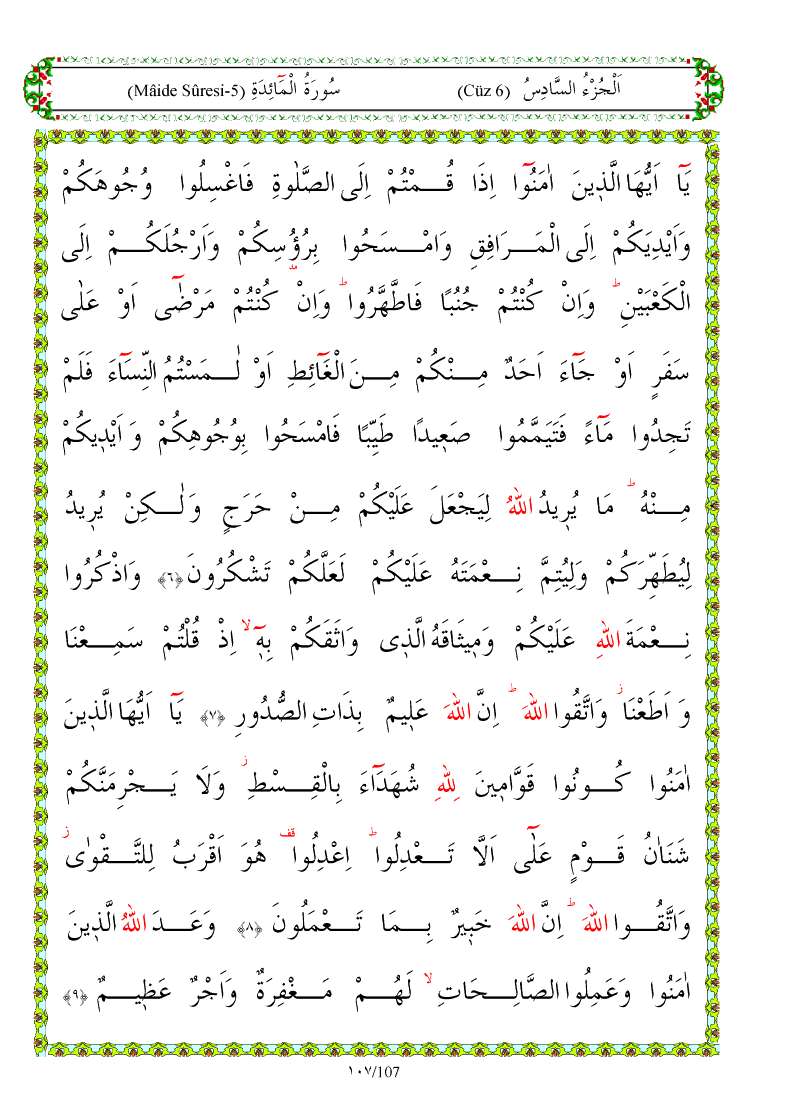 اَلْجُزْءُ السَّادِسُ (Cüz 6) سُورَةُ الْمَٓائِدَةِ (Mâide Sûresi-5)
يَٓا اَيُّهَا الَّذ۪ينَ اٰمَنُٓوا اِذَا قُمْتُمْ اِلَى الصَّلٰوةِ فَاغْسِلُوا وُجُوهَكُمْ
وَاَيْدِيَكُمْ اِلَى الْمَرَافِقِ وَامْسَحُوا بِرُؤُ۫سِكُمْ وَاَرْجُلَكُمْ اِلَى
الْكَعْبَيْنِۜ وَاِنْ كُنْتُمْ جُنُبًا فَاطَّهَّرُواۜ وَاِنْ كُنْتُمْ مَرْضٰٓى اَوْ عَلٰى
سَفَرٍ اَوْ جَٓاءَ اَحَدٌ مِنْكُمْ مِنَ الْغَٓائِطِ اَوْ لٰمَسْتُمُ النِّسَٓاءَ فَلَمْ
تَجِدُوا مَٓاءً فَتَيَمَّمُوا صَع۪يدًا طَيِّبًا فَامْسَحُوا بِوُجُوهِكُمْ وَ اَيْد۪يكُمْ
مِنْهُۜ مَا يُر۪يدُ اللّٰهُ لِيَجْعَلَ عَلَيْكُمْ مِنْ حَرَجٍ وَلٰكِنْ يُر۪يدُ
لِيُطَهِّرَكُمْ وَلِيُتِمَّ نِعْمَتَهُ عَلَيْكُمْ لَعَلَّكُمْ تَشْكُرُونَ ﴿٦﴾ وَاذْكُرُوا
نِعْمَةَ اللّٰهِ عَلَيْكُمْ وَم۪يثَاقَهُ الَّذ۪ى وَاثَقَكُمْ بِه۪ٓۙ اِذْ قُلْتُمْ سَمِعْنَا
وَ اَطَعْنَاۘ وَاتَّقُوا اللّٰهَۜ اِنَّ اللّٰهَ عَل۪يمٌ بِذَاتِ الصُّدُورِ ﴿٧﴾ يَٓا اَيُّهَا الَّذ۪ينَ
اٰمَنُوا كُونُوا قَوَّام۪ينَ لِلّٰهِ شُهَدَٓاءَ بِالْقِسْطِۘ وَلَا يَجْرِمَنَّكُمْ
شَنَاٰنُ قَوْمٍ عَلٰٓى اَلَّا تَعْدِلُواۜ اِعْدِلُوا۠ هُوَ اَقْرَبُ لِلتَّقْوٰىۘ
وَاتَّقُوا اللّٰهَۜ اِنَّ اللّٰهَ خَب۪يرٌ بِمَا تَعْمَلُونَ ﴿٨﴾ وَعَدَ اللّٰهُ الَّذ۪ينَ
اٰمَنُوا وَعَمِلُوا الصَّالِحَاتِۙ لَهُمْ مَغْفِرَةٌ وَاَجْرٌ عَظ۪يمٌ ﴿٩﴾
١٠٧/107